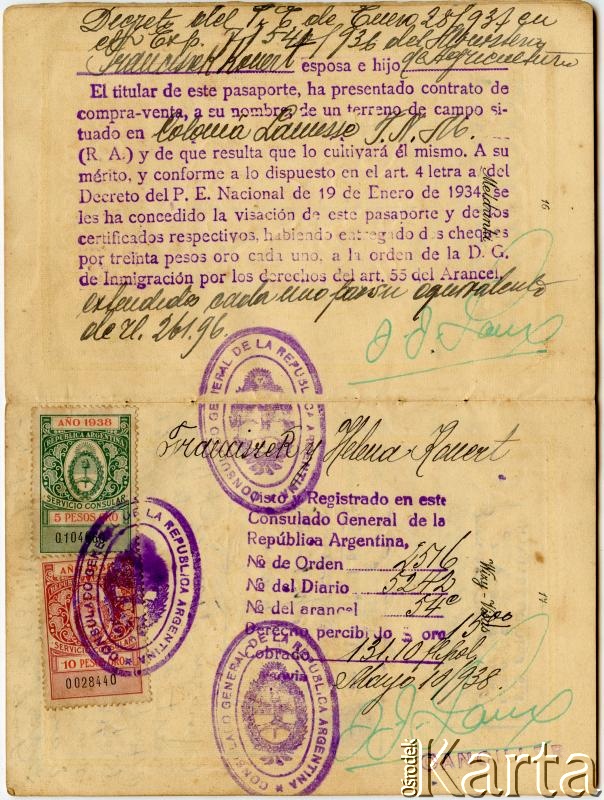 Decreto del P. E. de Enero 28/937 en
el Exp. 540/936 del Ministerio
Franciszek Konert esposa e hijo de Agricultura
El titular de este pasaporte, ha presentado contrato de
compra-venta, a su nombre de un terreno de campo si-
tuado en Colonia T. N. M.
(R. A.) y de que resulta que lo cultivará él mismo. A su
mérito, y conforme a lo dispuesto en el art. 4 letra a del
Decreto del P. E. Nacional de 19 de Enero de 1934, se
les ha concedido la visación de este pasaporte y de los
certificados respectivos, habiendo entregado dos cheques
por treinta pesos oro cada uno, a la orden de la D. G.
de Inmigración por los derechos del art. 55 del Arancel,
extendidos cada uno por su equivalente
de zl. 261.96.
16
CONSULADO GENERAL DE LA REPUBLICA ARGENTINA
AÑO 1938
REPUBLICA ARGENTINA
SERVICIO CONSULAR
5 PESOS ORO
AÑO
10 PESOS ORO
0028440
CONSULADO GENERAL DE LA REPUBLICA ARGENTINA
Franciszek y Helena Konert
Visto y Registrado en este
Consulado General de la
República Argentina,
No de Orden 2516
No del Diario 5242
No del arancel 54c
Derecho percibido $ oro 15.00
Cobrado 131,10
Mayo 10/938.
Wizy - Visas
17
CONSULADO GENERAL DE LA REPUBLICA ARGENTINA
CANCILLER
Ośrodek
Karta